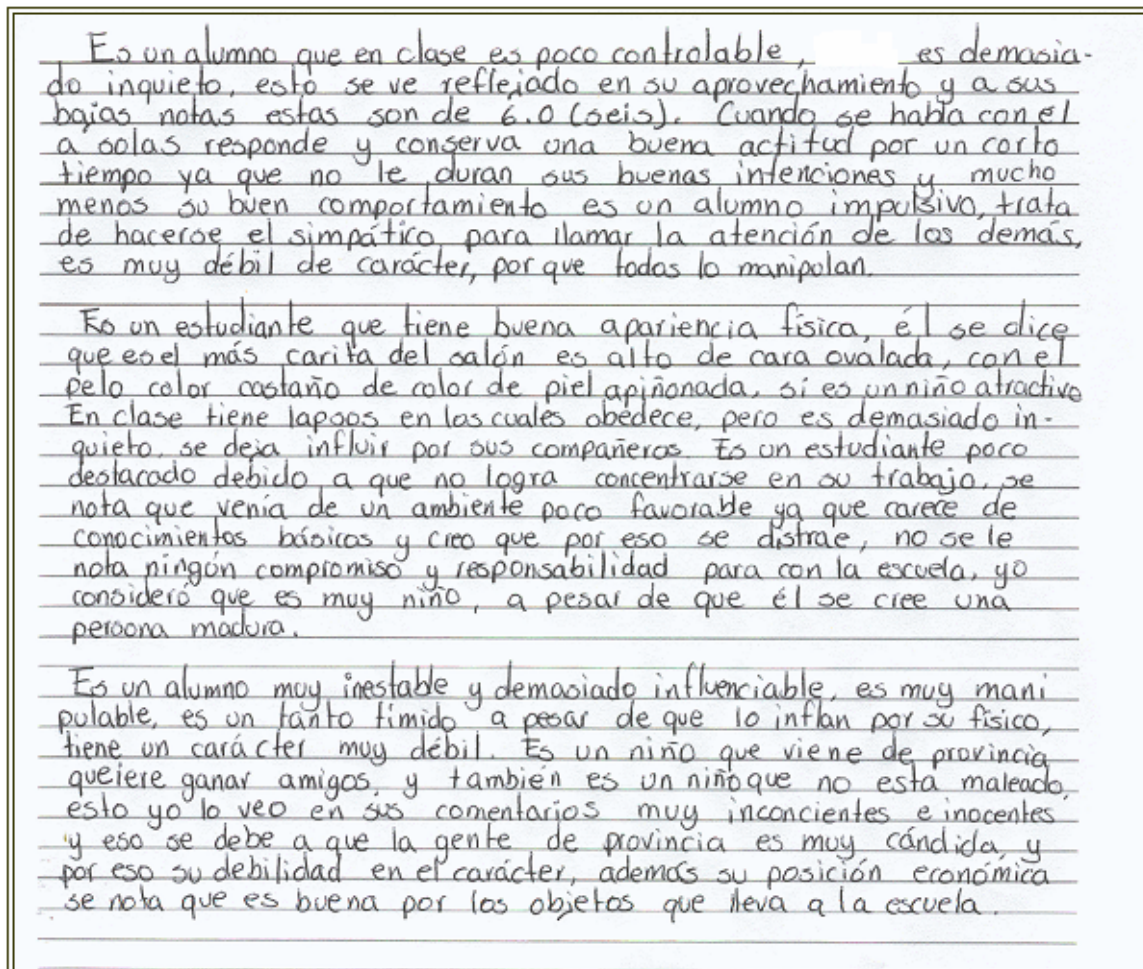 Es un alumno que en clase es poco controlable, es demasia-
do inquieto, esto se ve reflejado en su aprovechamiento y a sus
bajas notas estas son de 6.0 (seis). Cuando se habla con el
a solas responde y conserva una buena actitud por un corto
tiempo ya que no le duran sus buenas intenciones y mucho
menos su buen comportamiento es un alumno impulsivo, trata
de hacerse el simpático para llamar la atención de los demás,
es muy débil de carácter, por que todos lo manipulan.
Es un estudiante que tiene buena apariencia física, él se dice
que es el más carita del salón es alto de cara ovalada, con el
pelo color castaño de color de piel apiñonada, si es un niño atractivo
En clase tiene lapsos en los cuales obedece, pero es demasiado in-
quieto, se deja influir por sus compañeros. Es un estudiante poco
destacado debido a que no logra concentrarse en su trabajo, se
nota que venía de un ambiente poco favorable ya que carece de
conocimientos básicos y creo que por eso se distrae, no se le
nota ningún compromiso y responsabilidad para con la escuela, yo
consideró que es muy niño, a pesar de que él se cree una
persona madura.
Es un alumno muy inestable y demasiado influenciable, es muy mani
pulable, es un tanto tímido a pesar de que lo inflan por su físico,
tiene un carácter muy débil. Es un niño que viene de provincia
queiere ganar amigos, y también es un niño que no está maleado,
esto yo lo veo en sus comentarios muy inconcientes e inocentes
y eso se debe a que la gente de provincia es muy cándida, y
por eso su debilidad en el carácter, además su posición económica
se nota que es buena por los objetos que lleva a la escuela.